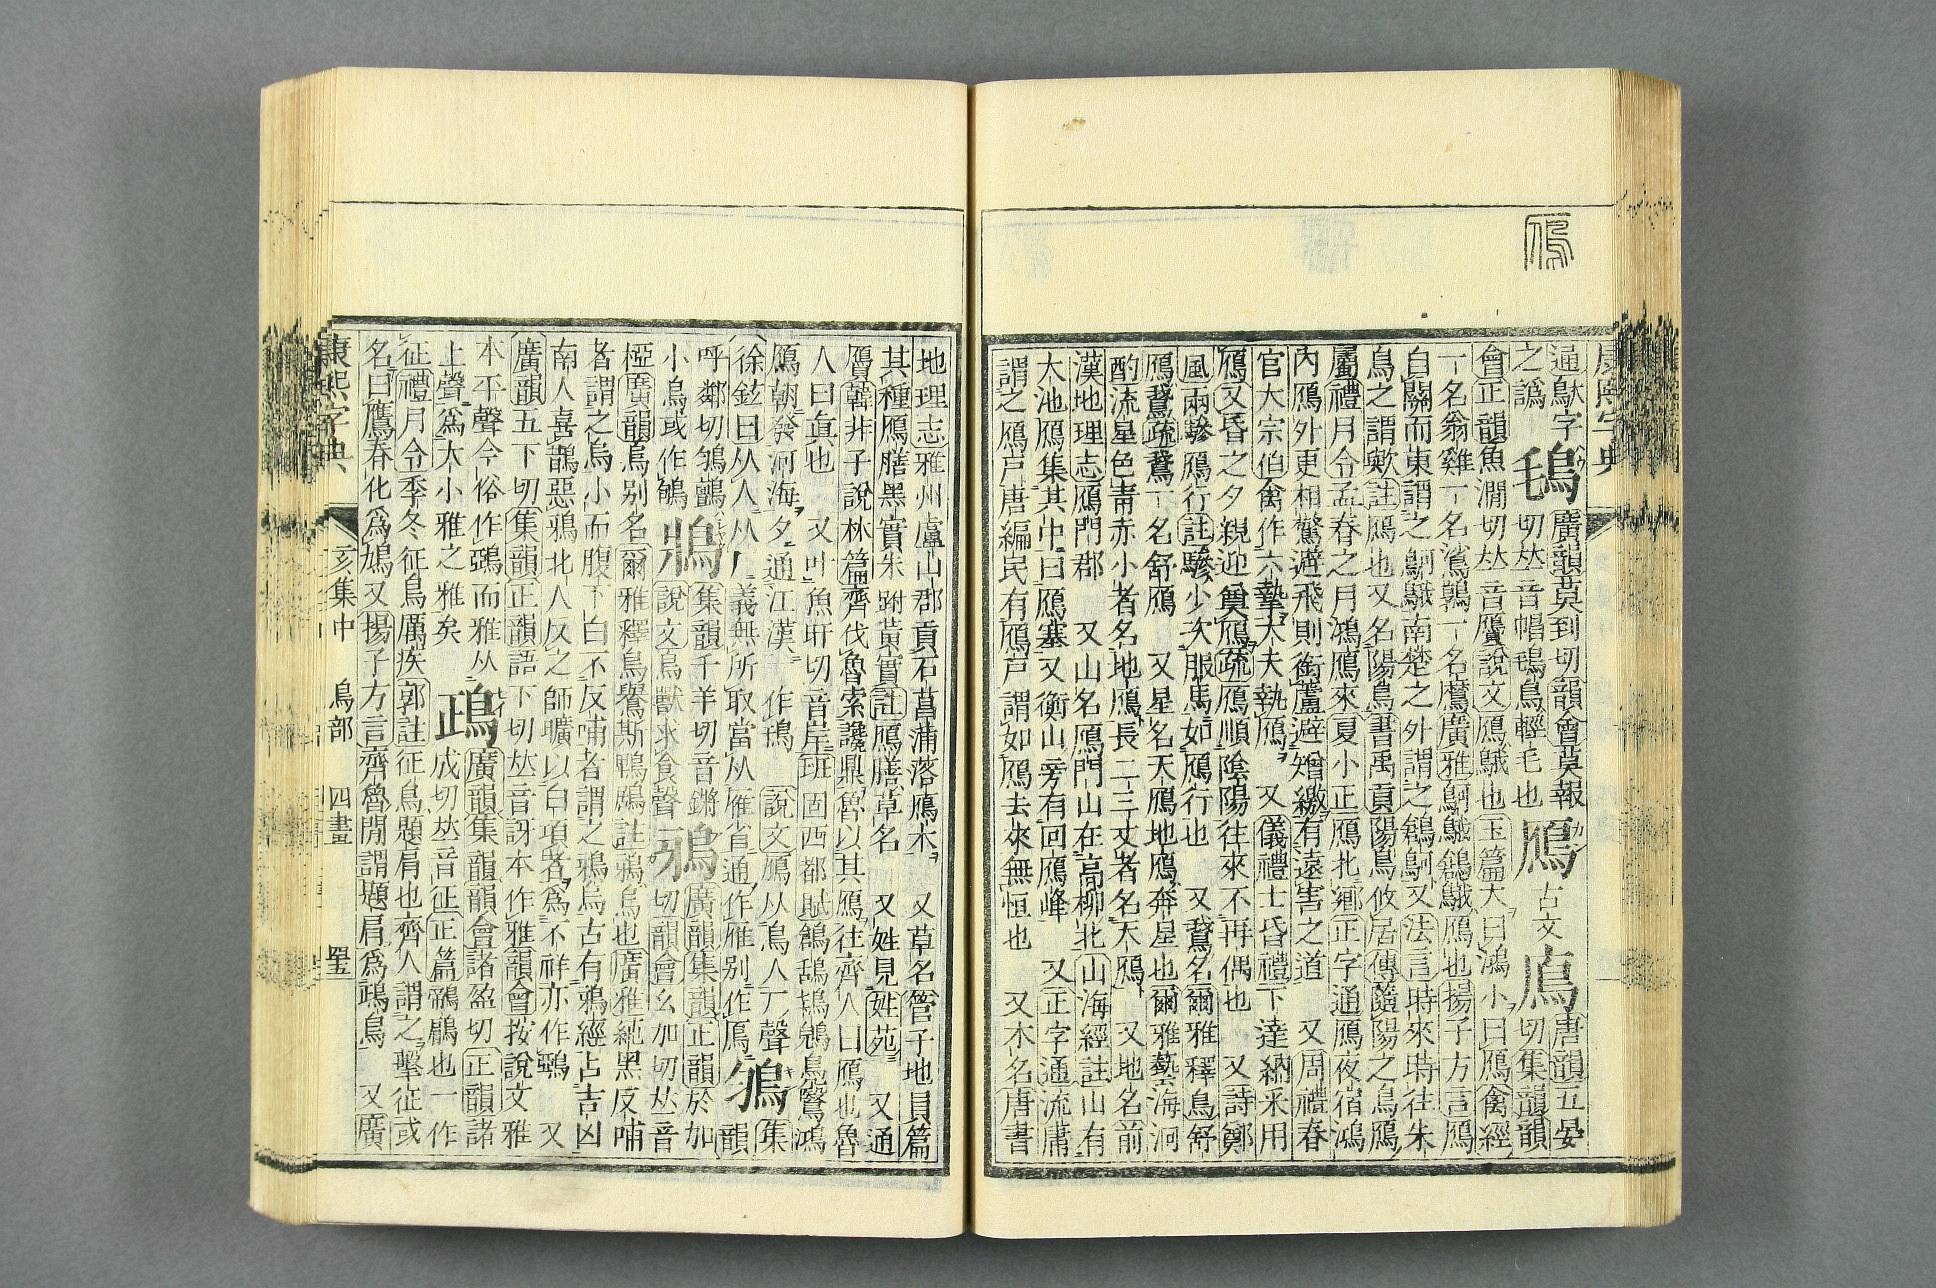 鴈
康熙字典
通鴃字 𪀕 廣韻莫到切韻會莫報 鴈 古文 𪈛 唐韻五晏
之譌 切𠀤音帽𪀕鳥輕毛也 切集韻韻
會正韻魚澗切𠀤音贗說文鴈鵝也玉篇大曰鴻小曰鴈禽經
一名翁雞一名鴽鶉一名鷹廣雅鴚鵝鶬鵝鴈也揚子方言鴈
自關而東謂之鴚鵝南楚之外謂之鵝或謂之鶬鴚又法言時來時往朱
鳥之謂歟註鴈也又名陽鳥書禹貢陽鳥攸居傳隨陽之鳥鴻鴈
屬禮月令孟春之月鴻鴈來夏小正鴈北鄕正字通鴈夜宿鴻
內鴈外更相驚避飛則銜蘆避矰繳有遠害之道 又周禮春
官大宗伯禽作六摯大夫執鴈 又儀禮士昏禮下達納采用
鴈又昏之夕親迎奠鴈疏鴈順陰陽往來不再偶也 又詩鄭
風兩驂鴈行註驂少次服馬如鴈行也 又鵞名爾雅釋鳥舒
鴈鵞疏鵞一名舒鴈 又星名天鴈地鴈奔星也爾雅藝海泂
酌流星色靑赤小者名地鴈長二三丈者名大鴈 又地名前
漢地理志鴈門郡 又山名鴈門山在高柳北山海經註山有
大池鴈集其中曰鴈塞又衡山旁有回鴈峰 又正字通流庸
謂之鴈戸唐編民有鴈戸謂如鴈去來無恒也 又木名唐書
地理志雅州盧山郡貢石菖蒲落鴈木 又草名管子地員篇
其種鴈膳黑實朱跗黃實註鴈膳草名 又姓見姓苑 又通
贋韓非子說林篇齊伐魯索讒鼎魯以其鴈往齊人曰鴈也魯
人曰眞也 又叶魚旰切音岸班固西都賦鶬鴰鴇鶂鳧鷖鴻
鴈朝發河海夕通江漢 作鳱 說文鴈从鳥人厂聲 集
徐鉉曰从人从厂義無所取當从雁省通作雁別作鳫 鴝 韻
呼鄰切鴝鸜 鴹 集韻千羊切音鏘 鴉 廣韻集韻正韻於加
小鳥或作鵃 說文鳥獸求食聲 切韻會幺加切𠀤音
椏廣韻烏別名爾雅釋鳥鸒斯鵯鶋註鴉烏也廣雅純黑反哺
者謂之烏小而腹下白不反哺者謂之鴉烏古有鴉經占吉凶
南人喜鵲惡鴉北人反之師曠以白項者爲不祥亦作鵶 又
廣韻五下切集韻正韻語下切𠀤音訝本作雅韻會按說文雅
本平聲今俗作鵶而雅从 鴊 廣韻集韻韻會諸盈切正韻諸
上聲爲大小雅之雅矣 成切𠀤音征正篇鶙鵳也一作
征禮月令季冬征鳥厲疾郭註征鳥題肩也齊人謂之擊征或
名曰鷹春化爲鳩又揚子方言齊魯閒謂題肩爲鴊鳥 又廣
康熙字典
亥集中 鳥部 四畫